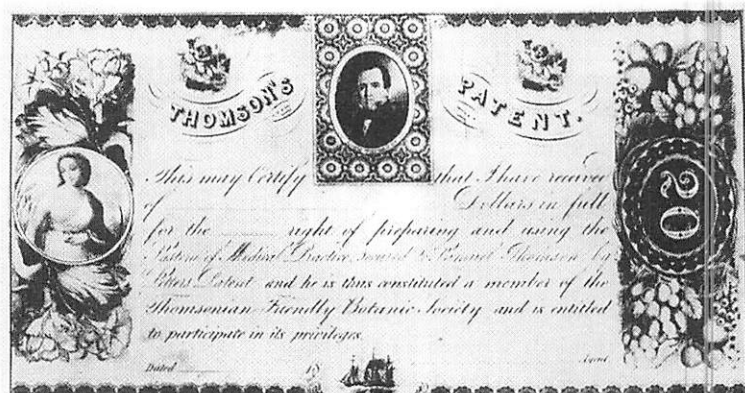 THOMSON'S PATENT.
This may Certify that I have received
of Dollars in full
for the right of preparing and using the
System of Medical Practice, secured to Samuel Thomson by
Letters Patent and he is thus constituted a member of the
Thomsonian Friendly Botanic Society and is entitled
to participate in its privileges.
Dated 18 Agent
20